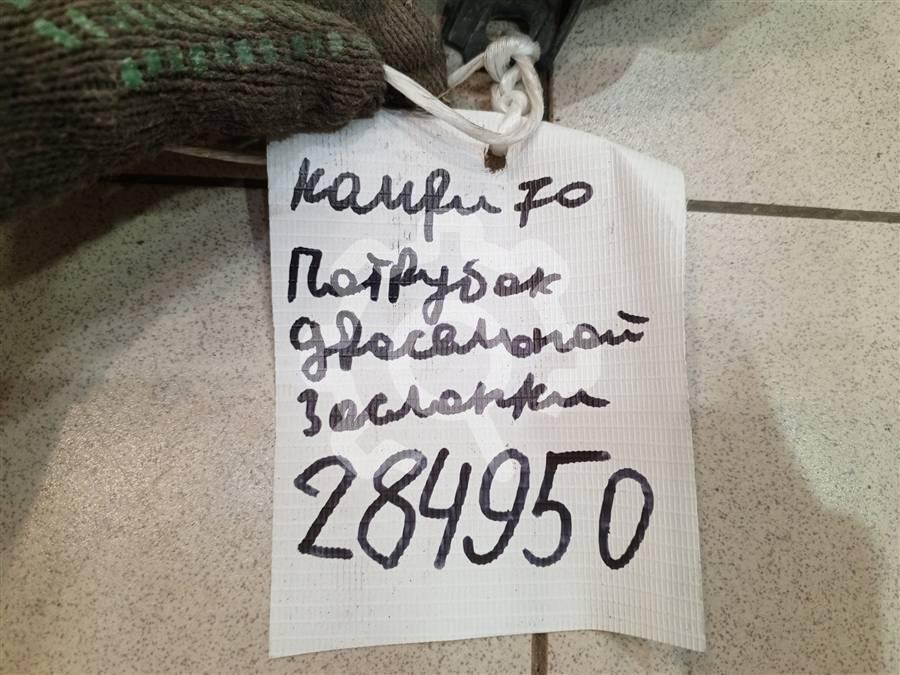 камри 70
Патрубок
дросельной
заслонки
284950